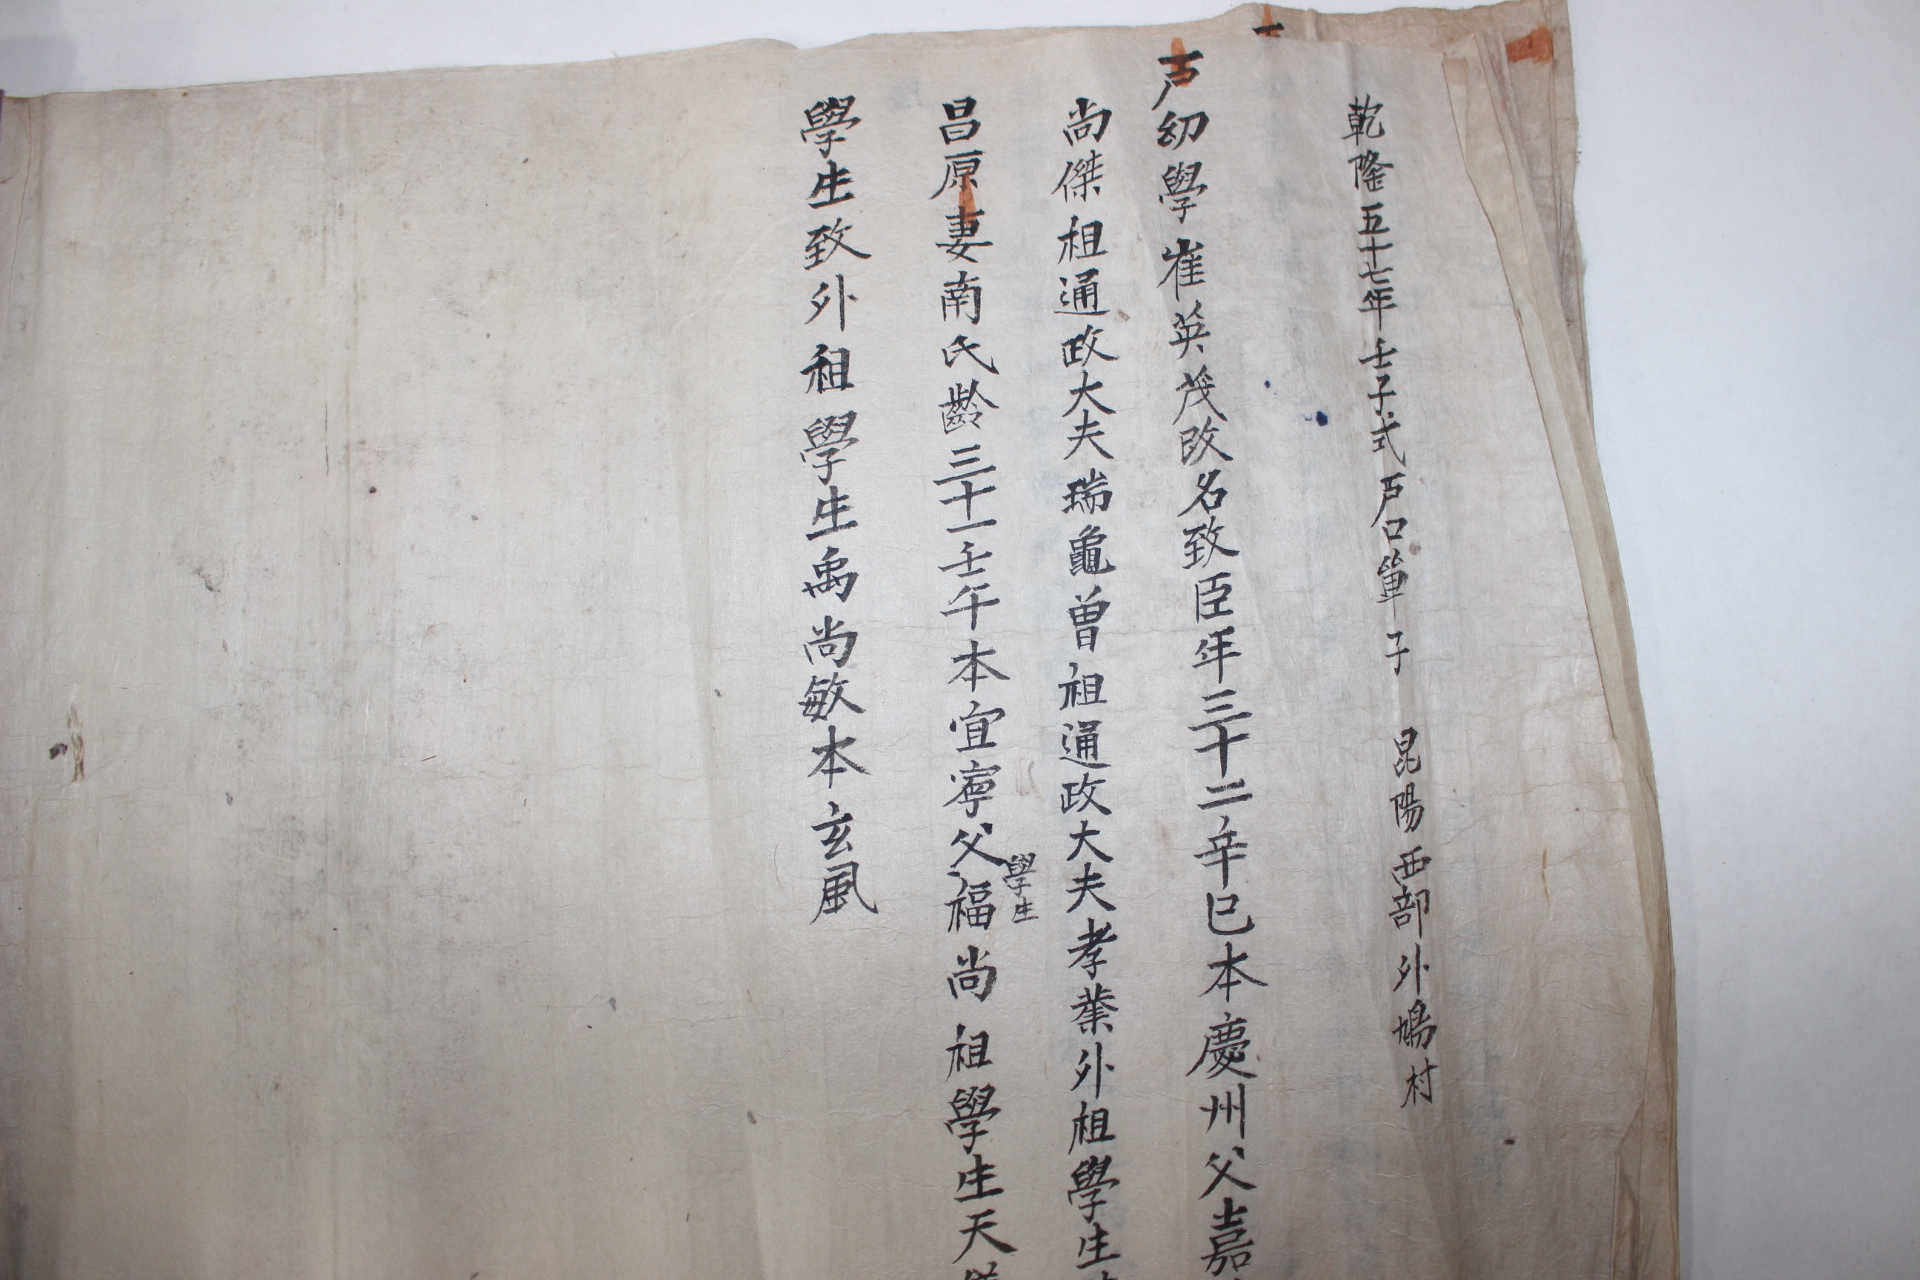 乾隆五十七年壬子式戶口單子 昆陽西部外鳩村
戶幼學崔英茂改名致臣年三十二辛巳本慶州父嘉
尚傑祖通政大夫瑞龜曾祖通政大夫孝業外祖學生
昌原妻南氏齡三十一壬午本宜寧父學生福尚祖學生天
學生致外祖學生禹尚敏本玄風